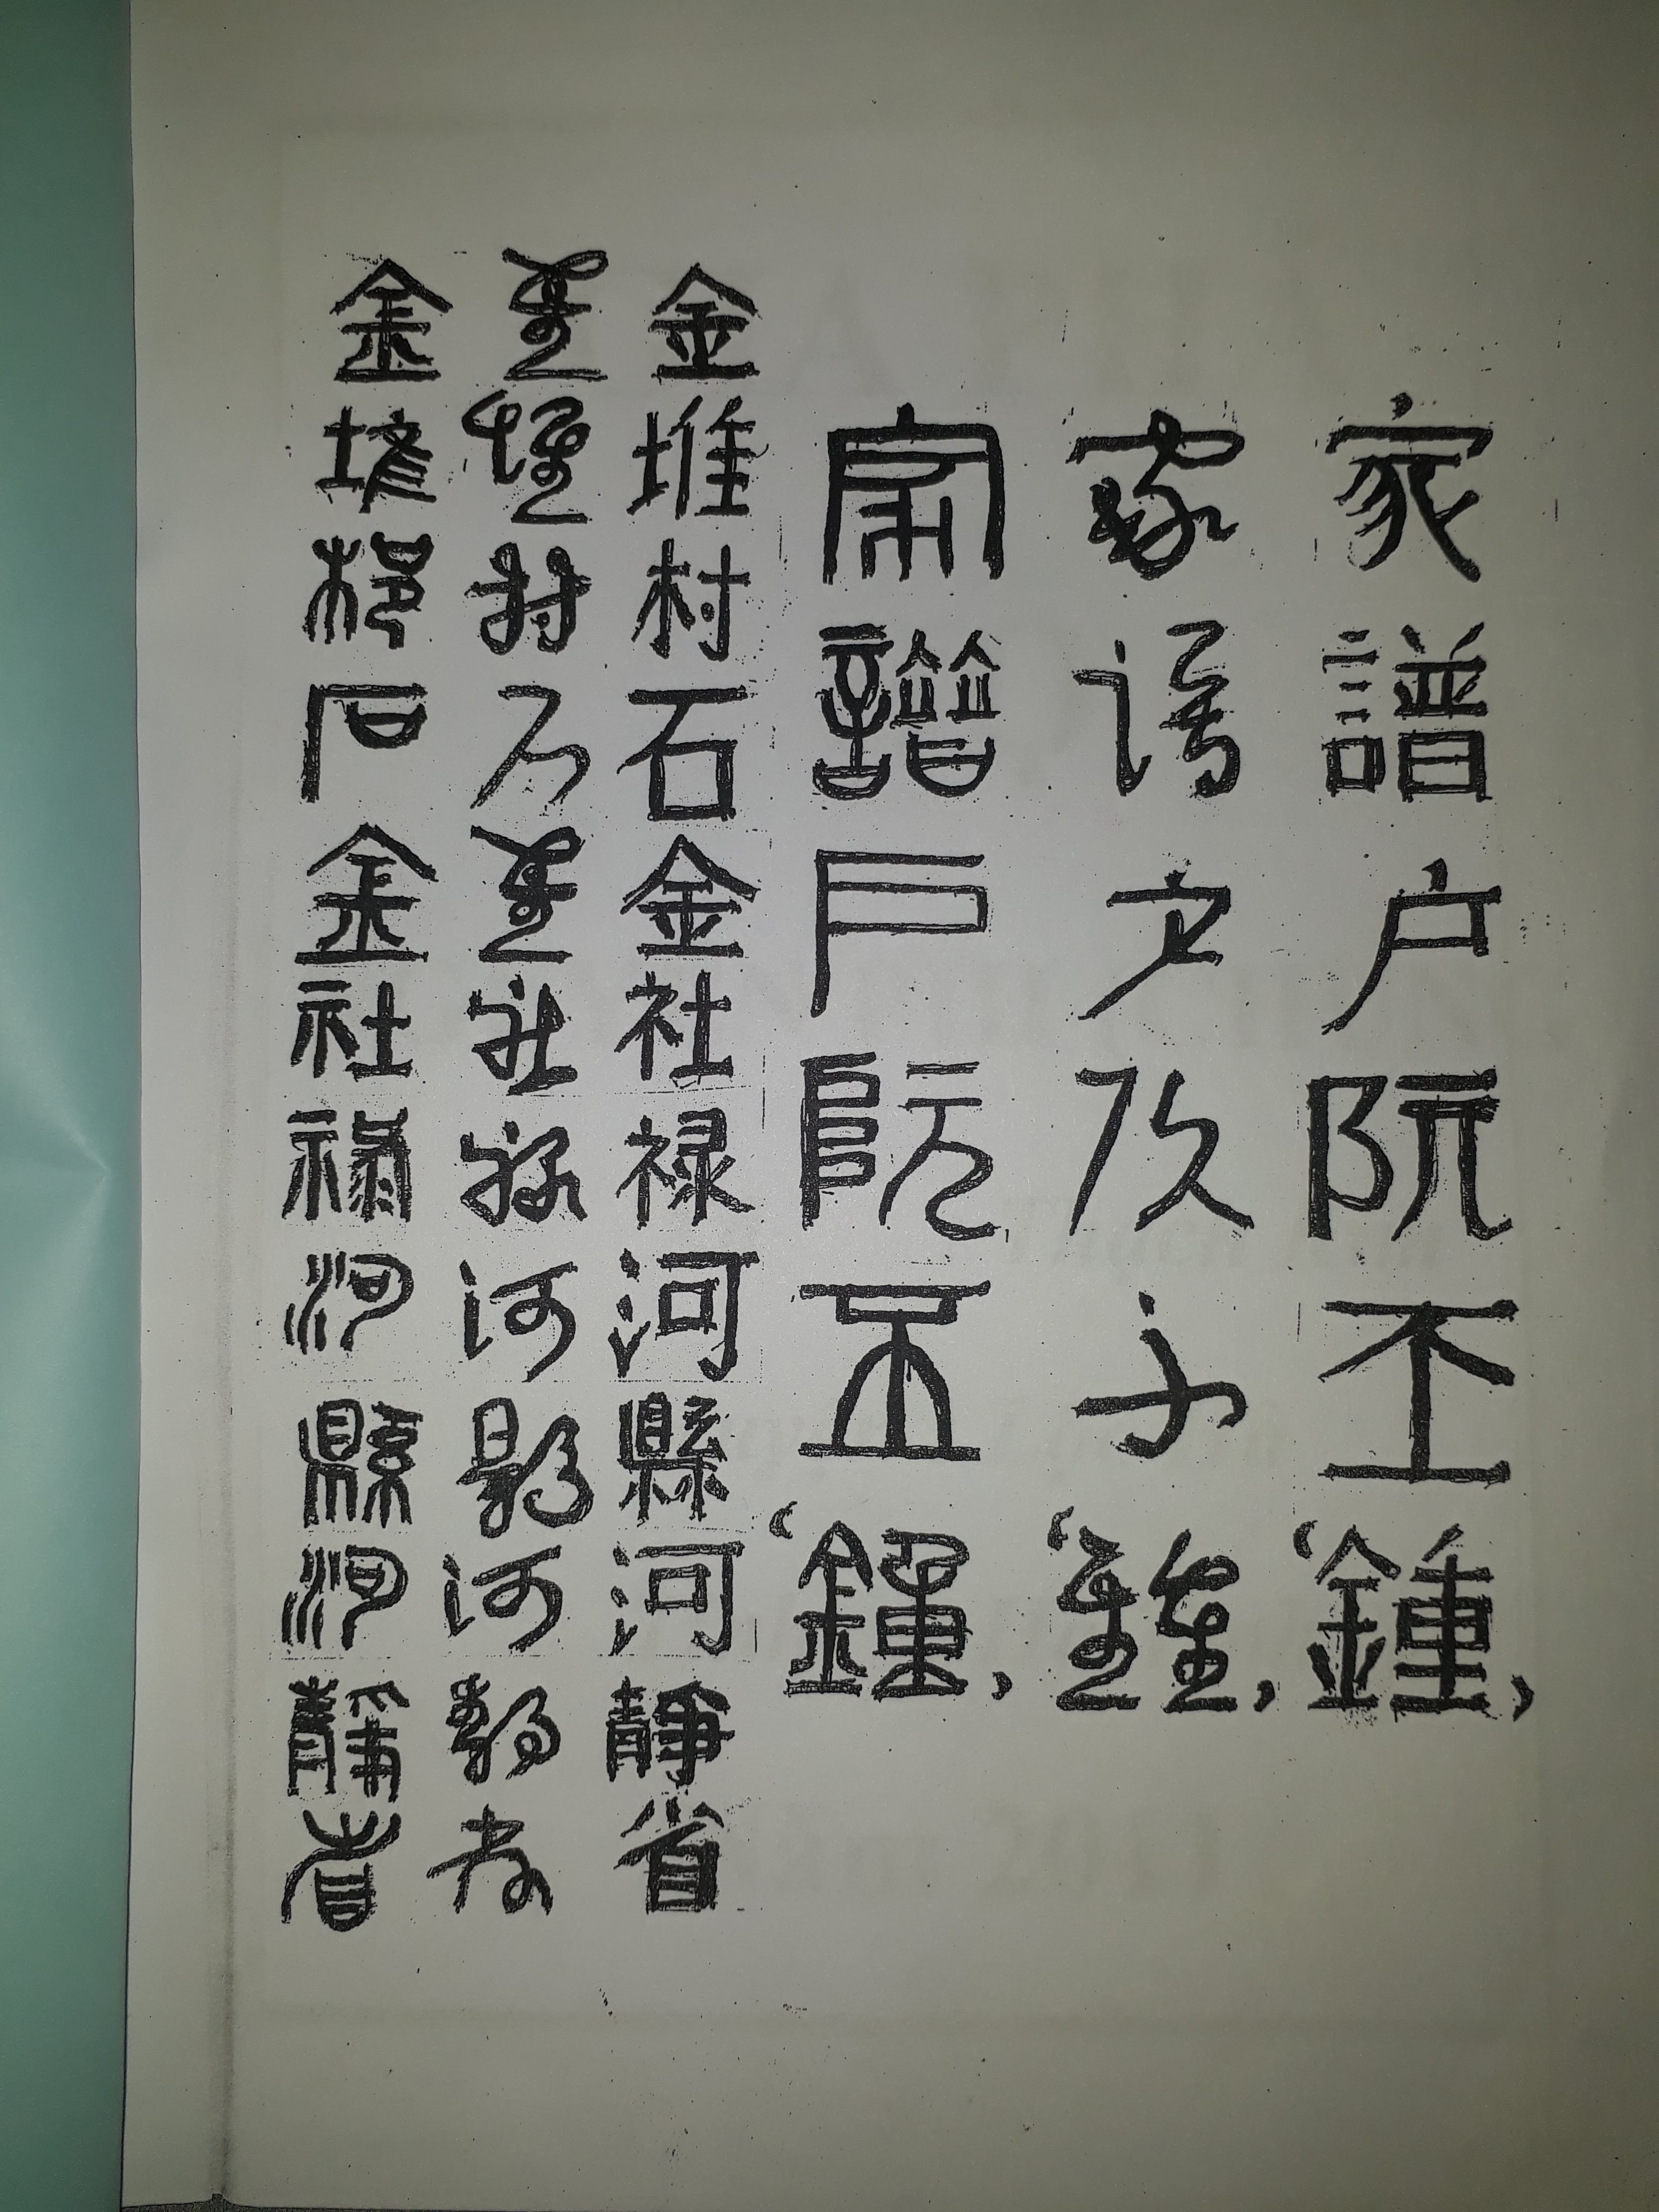 家譜户阮丕‘鍾,
家譜户阮丕‘鍾,
家譜户阮丕‘鍾,
金堆村石金社禄河縣河靜省
金堆村石金社禄河縣河靜省
金堆村石金社禄河縣河靜省